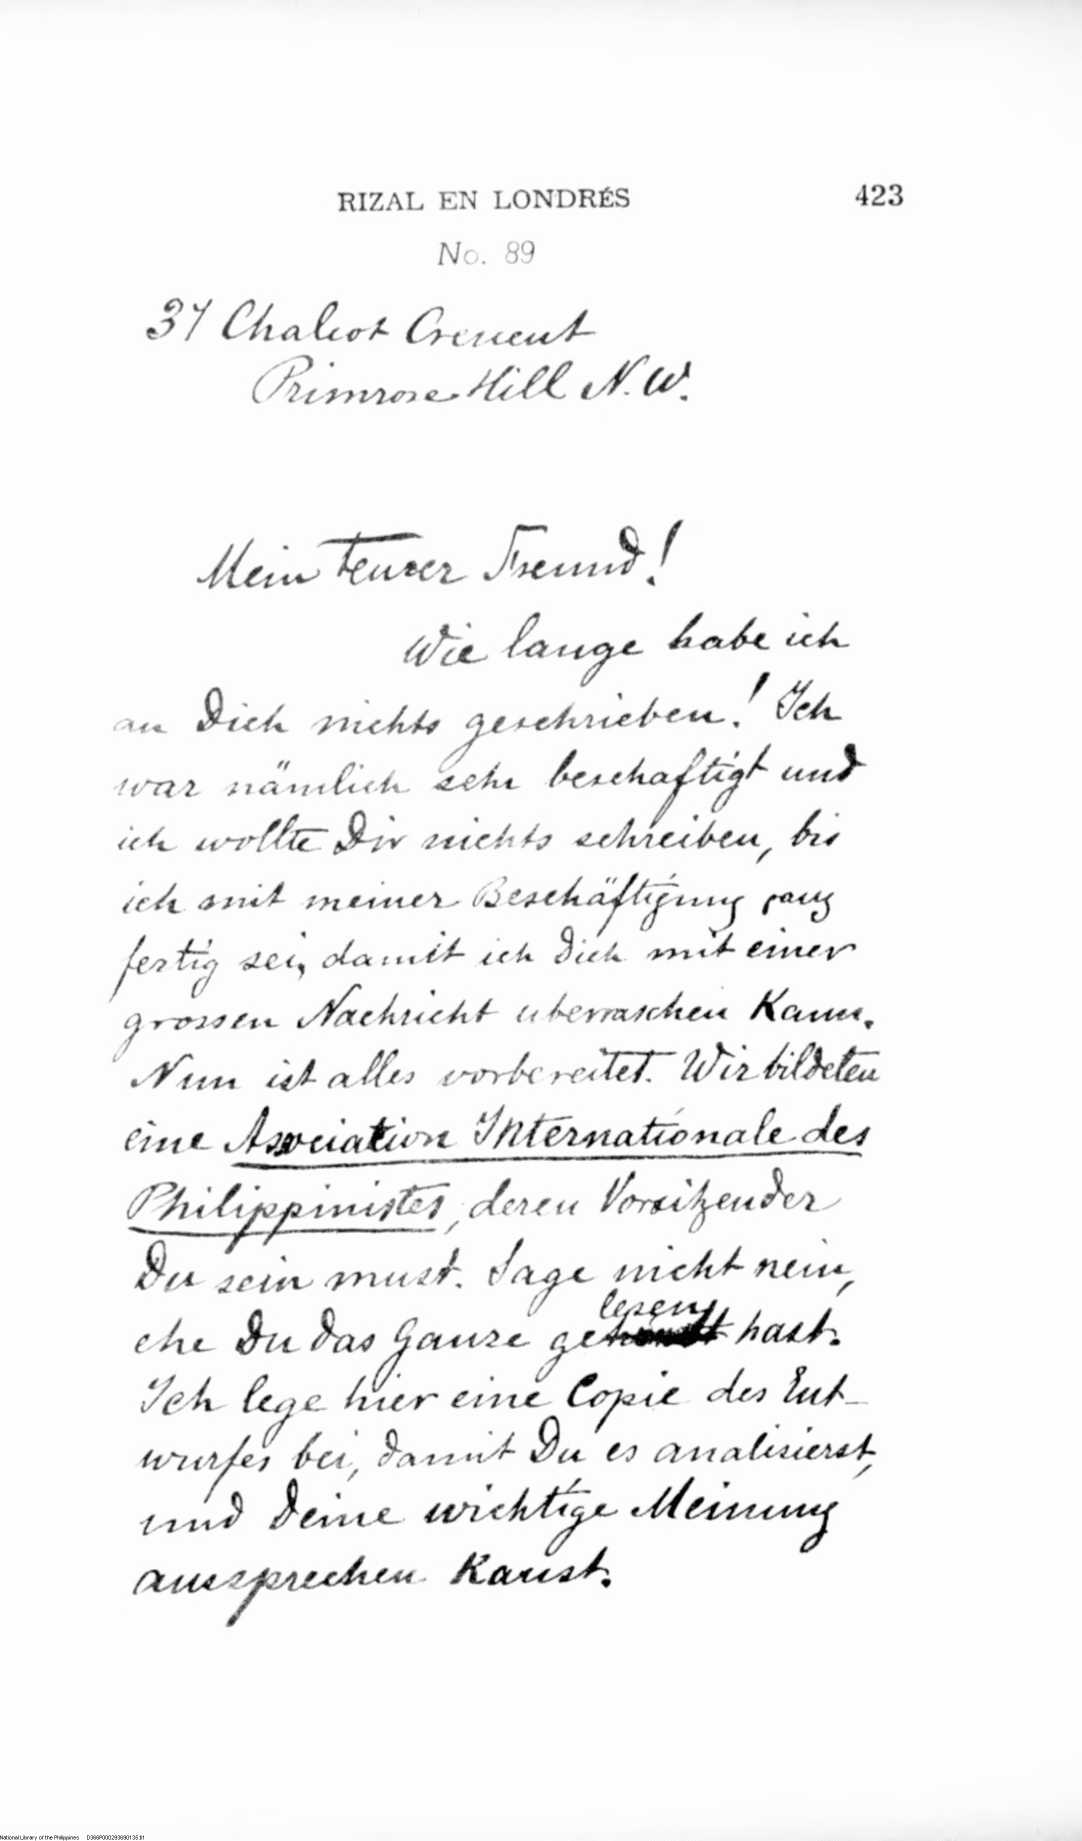 RIZAL EN LONDRÉS 423
No. 89
37 Chalcot Crescent
Primrose Hill N. W.
Mein teurer Freund!
Wie lange habe ich
an Dich nichts geschrieben! Ich
war nämlich sehr beschaftigt und
ich wollte Dir nichts schreiben, bis
ich mit meiner Beschäftigung ganz
fertig sei, damit ich Dich mit einer
grossen Nachricht uberraschen Kann.
Nun ist alles vorbereitet. Wir bildeten
eine Association Internationale des
Philippinistes, deren Vorsitzender
Du sein must. Sage nicht nein,
lesen
ehe Du das Ganze ge hast.
Ich lege hier eine Copie des Ent-
wurfes bei, damit Du es analisierst,
und Deine wichtige Meinung
aussprechen Kanst.
National Library of the Philippines